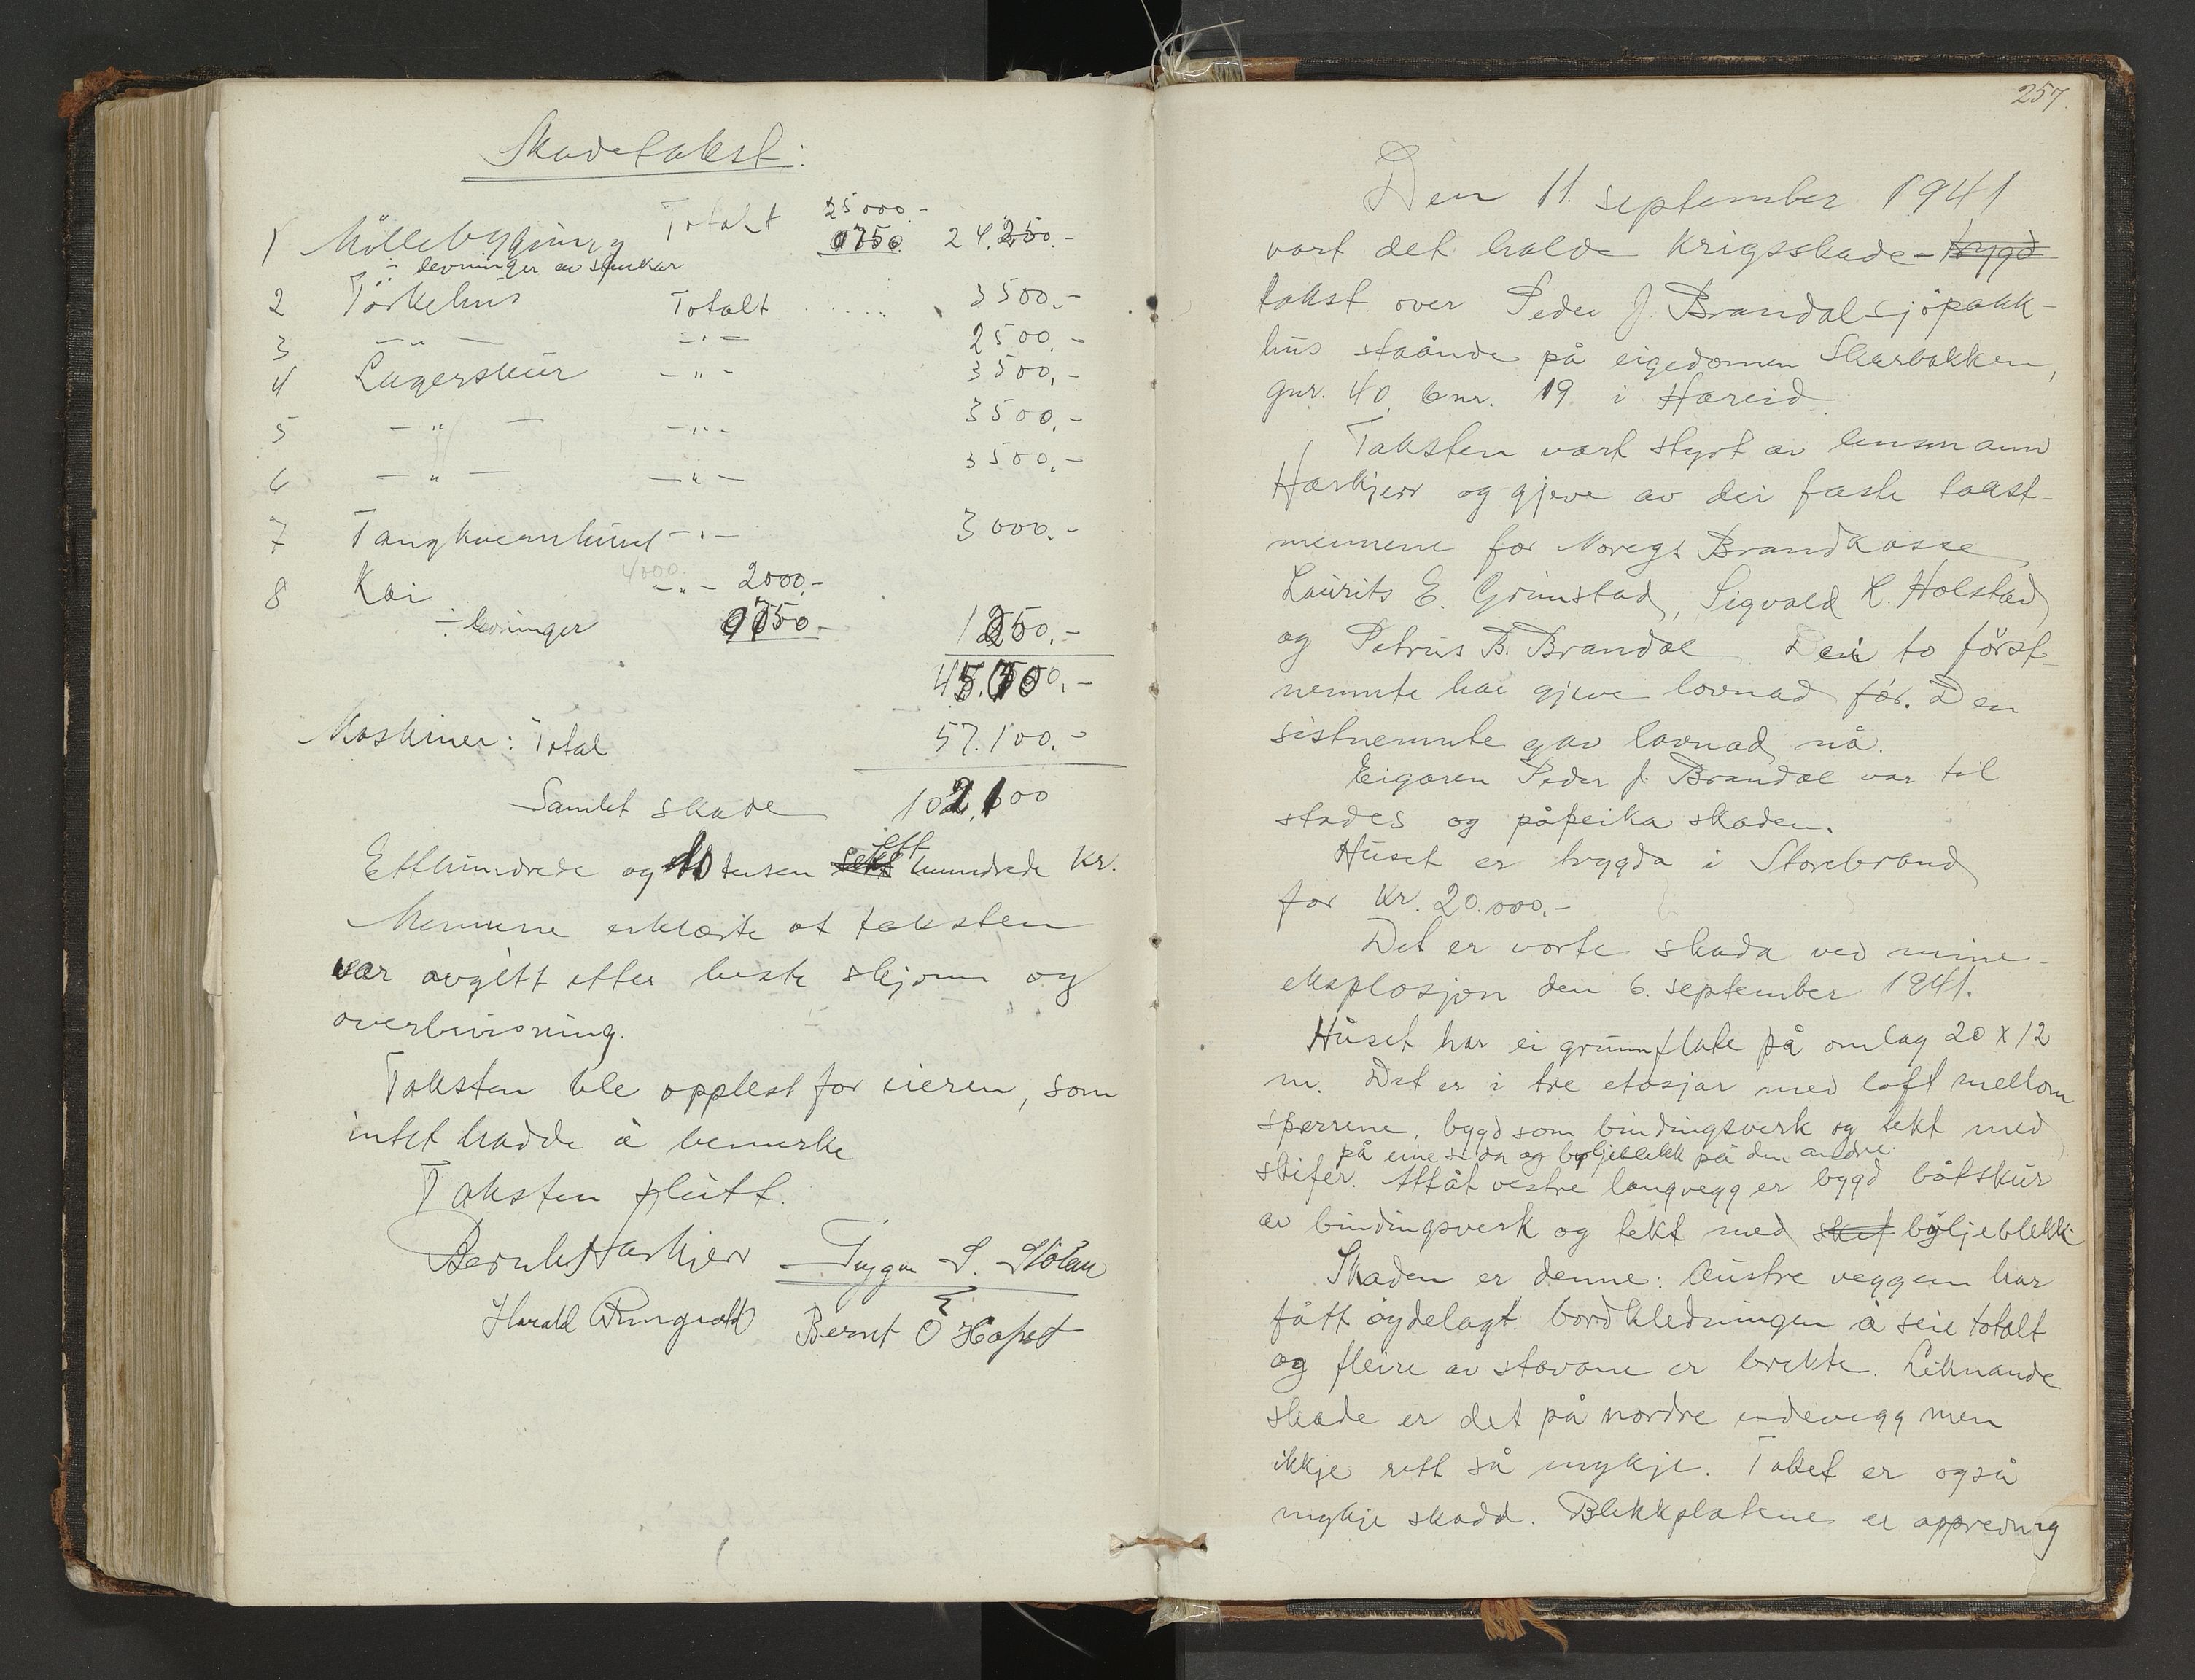 Skadetakst:
1 Möllebygning Totalt 25000.-
0750. 24.250.-
÷ levninger av stenkar
2 Törkehus Totalt ..... 3500.-
3 - " - - " - 2500.-
4 Lagerskur - " - 3500,-
5 - " - - " - 3500.-
6 - " - - " - 3500.-
7 Tangkvernhuset - " - 3000.-
4000.
8 Kai - " - 2000.-
÷ levninger 0750.- 1250.-
Maskiner: Total 57.100.-
Samlet skade 102,100
Etthundrede og to tusen ett hundrede Kr.
Mennene erklærte at taksten
var avgitt etter beste skjønn og
overbevisning.
Taksten ble opplest for eieren, som
intet hadde å bemerke
Taksten slutt.
Bernh Harkjerr Trygve S. Stölan
Harald Ringvold Bernt O Hafset
257.
Den 11. september 1941
vart det halde Krigsskade- bygd
takst over Peder J. Brandal sjöpakk-
hus staånde på eigedomen Skarbakken,
gnr. 40 bnr. 19 i Hareid.
Taksten vart styrt av lensmann
Harkjerr og gjeve av dei faste takst-
mennene for Noregs Brandkasse
Laurits E. Grimstad, Sigvald K. Holstad
og Petrus B. Brandal Dei to först-
nemnte har gjeve lovnad för. Den
sistnemnte gav lovnad nå.
Eigaren Peder J. Brandal var til
stades og påpeika skaden.
Huset er trygda i Storebrand
for Kr. 20.000.-
Det er vorte skada ved mine-
eksplosjon den 6. september 1941.
Huset har ei grunnflate på omlag 20 x 12
m. Det er i tre etasjar med loft mellom
sperrene, bygd som bindingsverk og tekt med
på eine sida og bylgjeblekk på den andre.
skifer. Attåt vestre langvegg er bygd båtskur
av bindingsverk og tekt med skif bylgjeblekk
Skaden er denne: Austre veggen har
fått öydelagt bordkledningen å seie totalt
og fleire av stavane er brekte. Liknande
skade er det på nordre endevegg men
ikkje rett så mykje. Taket er også
mykje skadd. Blekkplatene er opprevne og